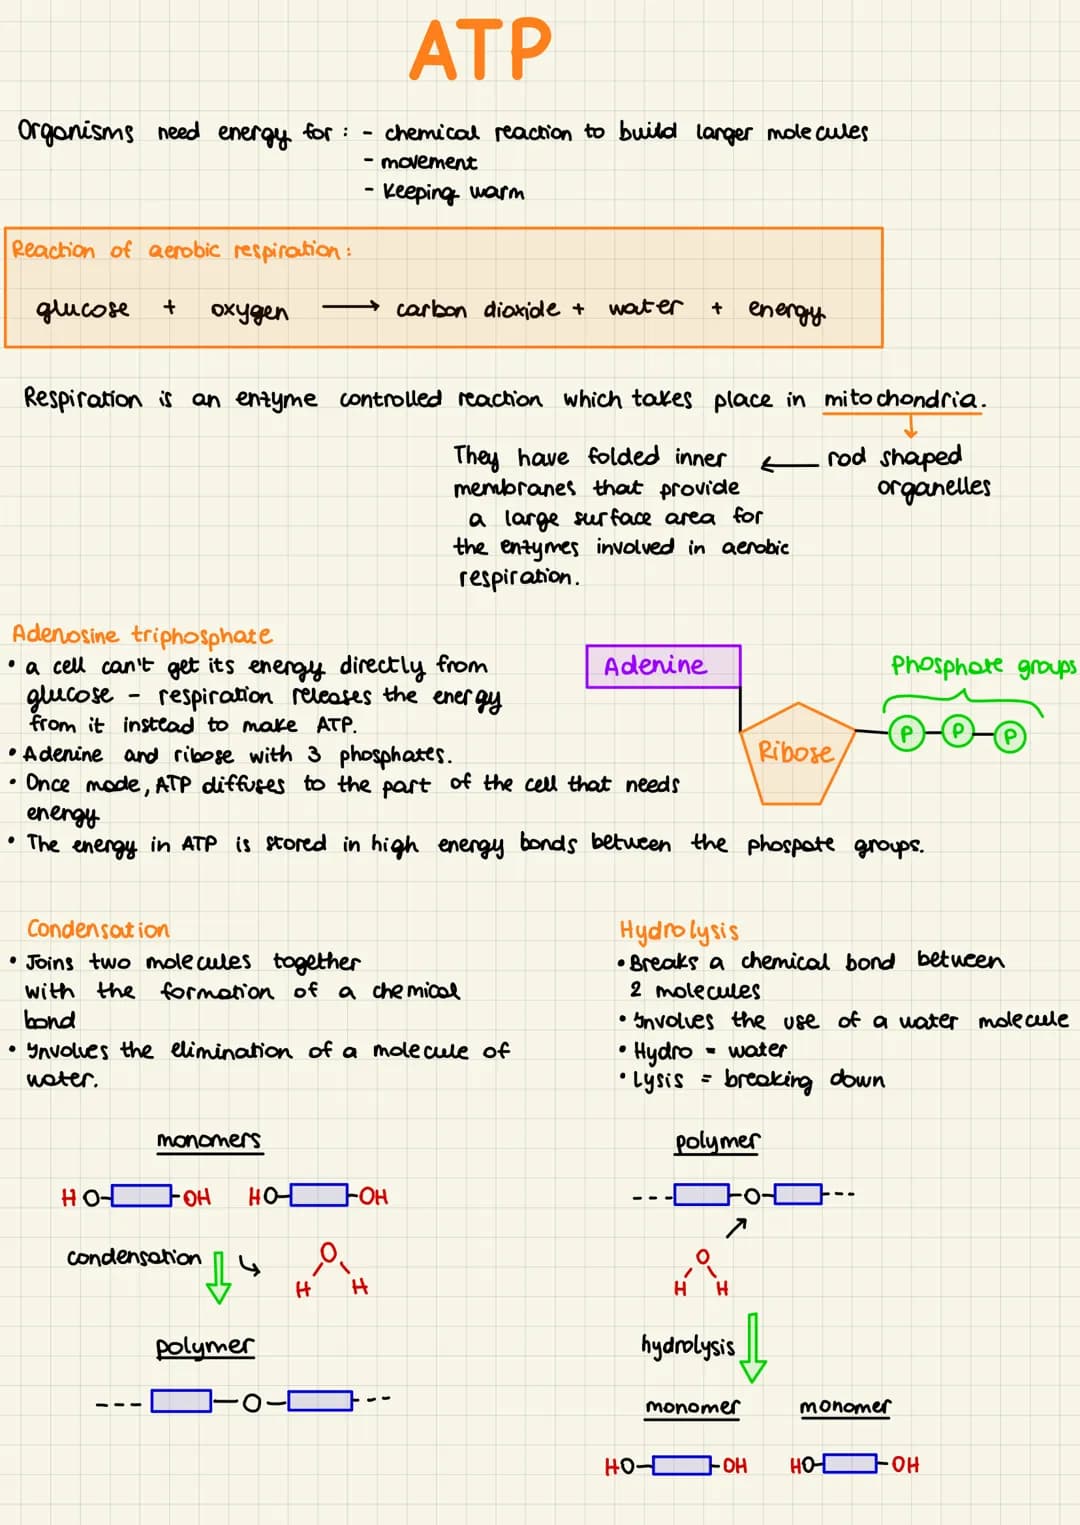 ATP
Organisms need energy for : - chemical reaction to build larger molecules
- movement
- Keeping warm
Reaction of aerobic respiration :
glucose + oxygen ⟶ carbon dioxide + water + energy
Respiration is an enzyme controlled reaction which takes place in mitochondria.
They have folded inner ⟵ rod shaped
membranes that provide organelles
a large surface area for
the enzymes involved in aerobic
respiration.
Adenosine triphosphate
• a cell can't get its energy directly from
glucose - respiration releases the energy
from it instead to make ATP.
• Adenine and ribose with 3 phosphates.
• Once made, ATP diffuses to the part of the cell that needs
energy
• The energy in ATP is stored in high energy bonds between the phospate groups.
Adenine
Phosphate groups
Ribose
P P P
Condensation
• Joins two molecules together
with the formation of a chemical
bond
• Involves the elimination of a molecule of
water.
monomers
HO OH HO OH
condensation
O
H H
polymer
O
Hydrolysis
• Breaks a chemical bond between
2 molecules
• Involves the use of a water molecule
• Hydro = water
• Lysis = breaking down
polymer
O
O
H H
hydrolysis
monomer monomer
HO OH HO OH